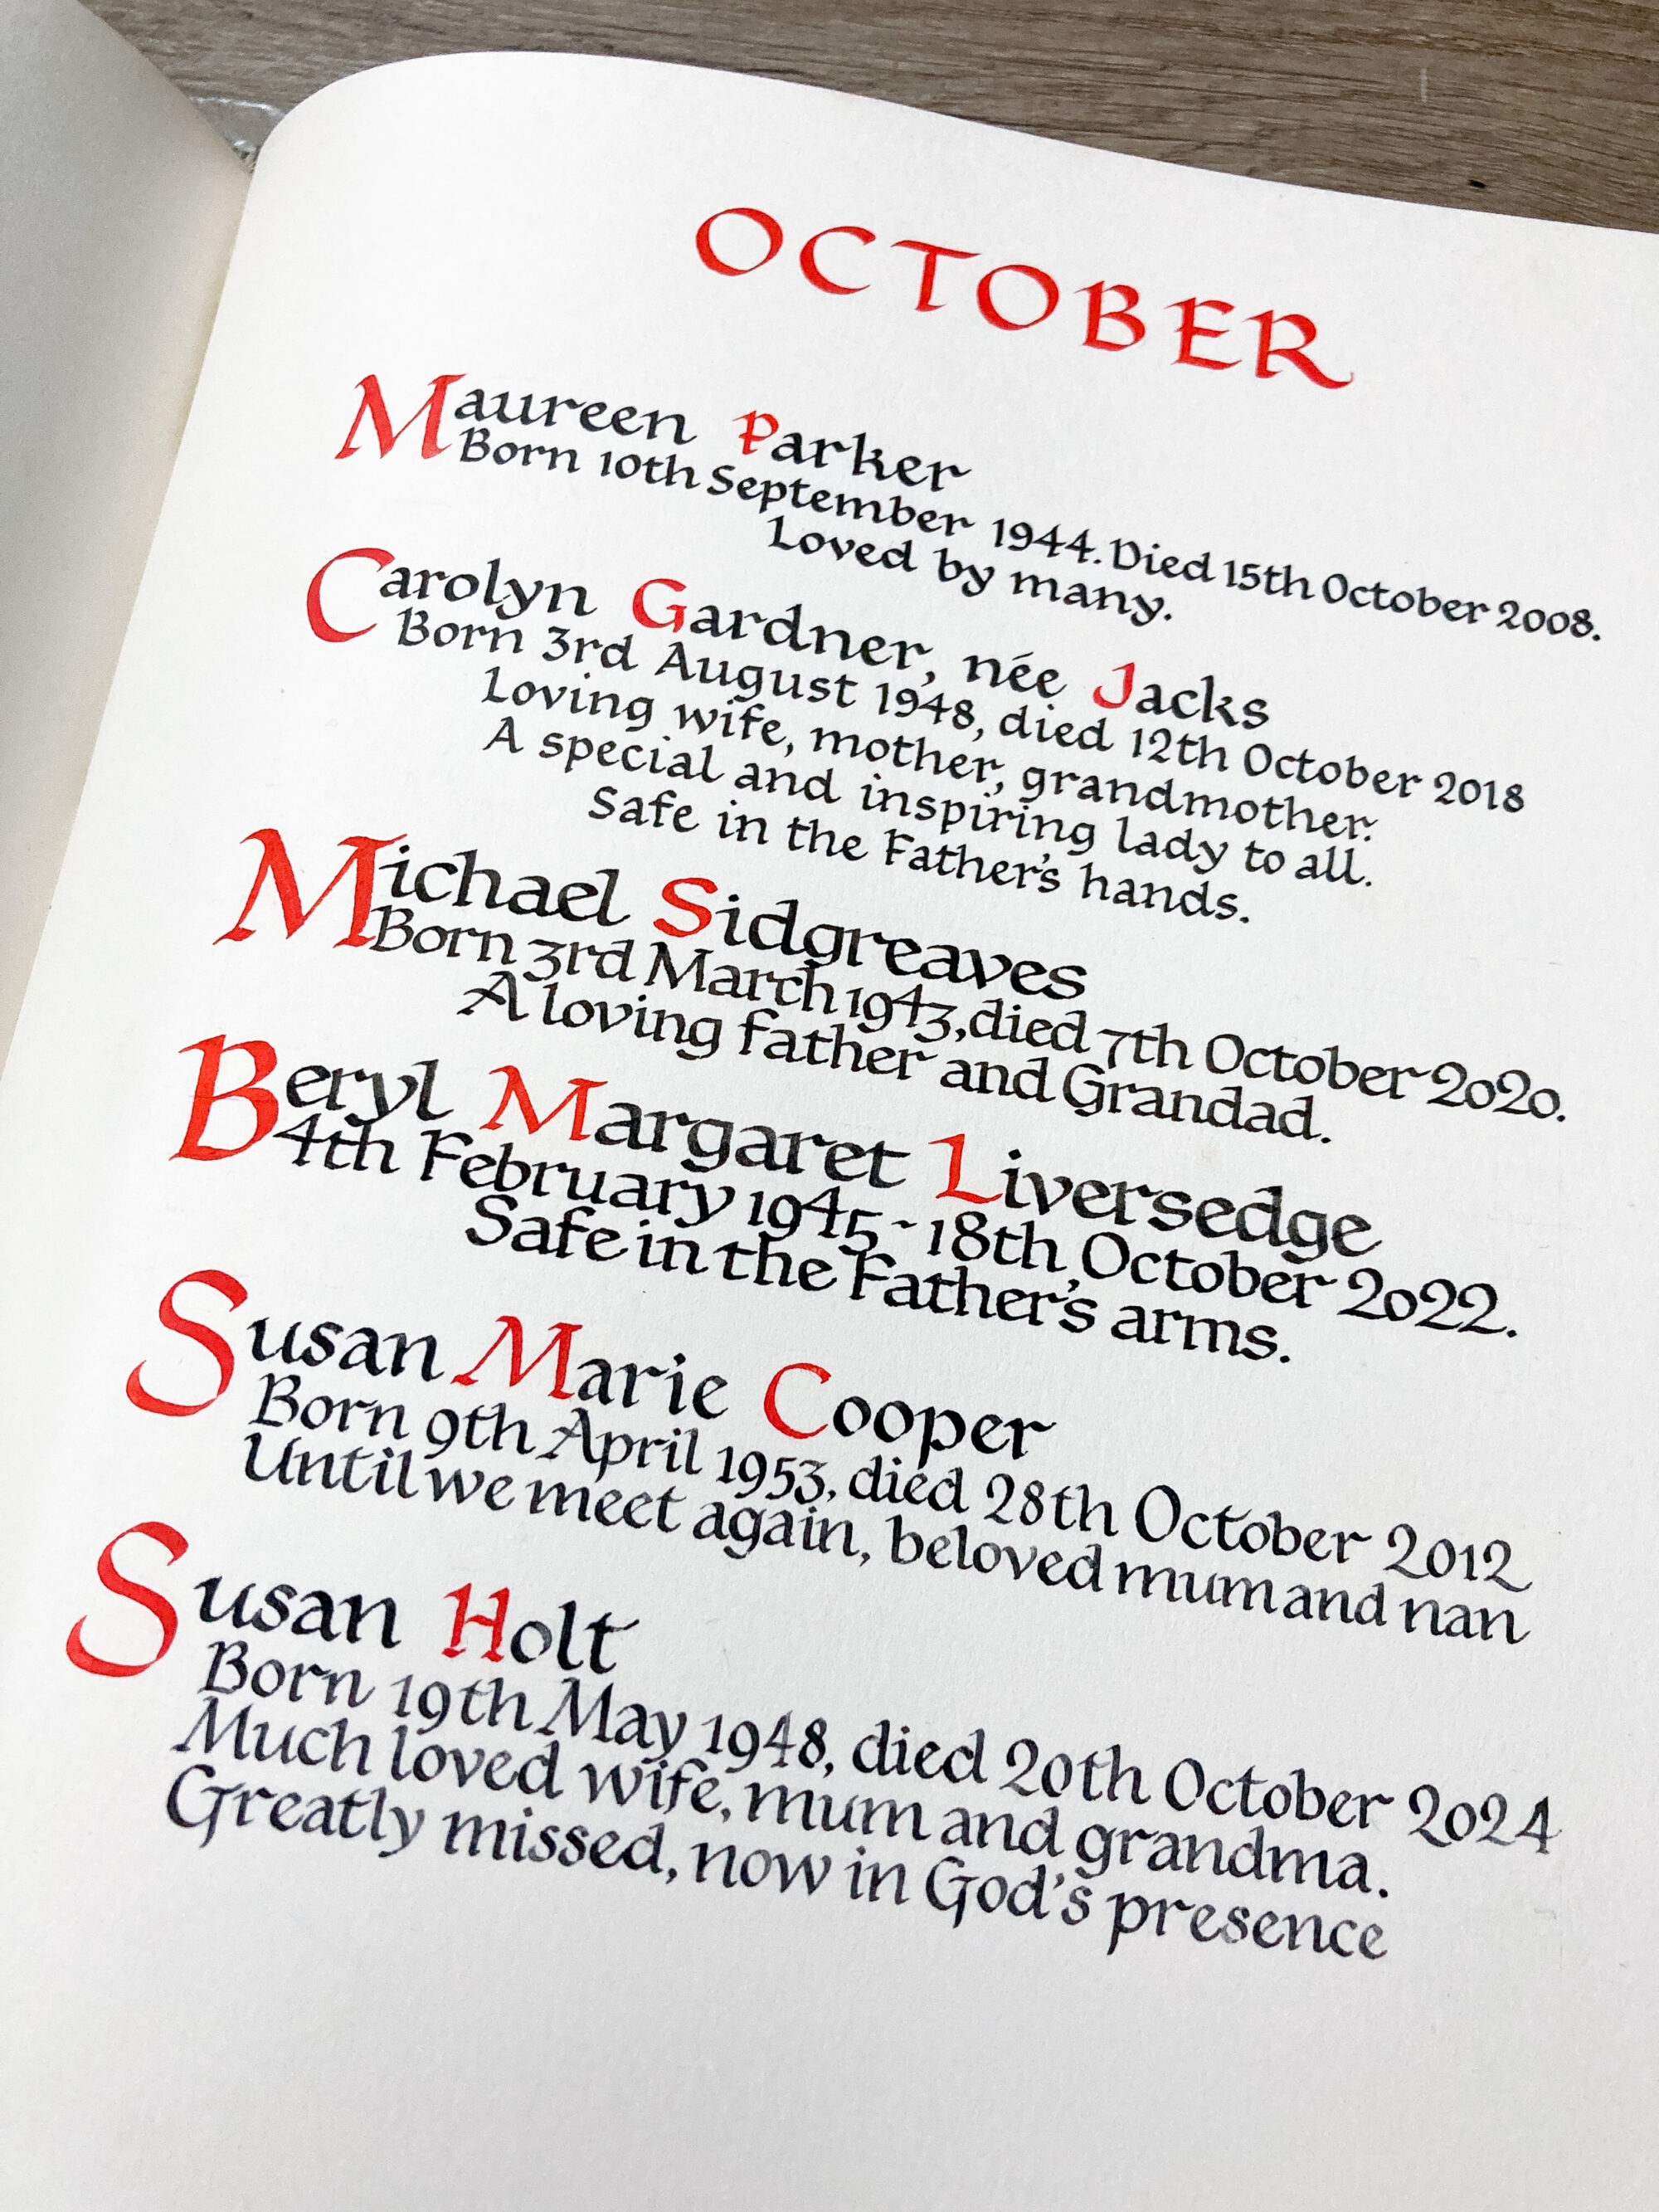 OCTOBER
Maureen Parker
Born 10th September 1944. Died 15th October 2008.
Loved by many.
Carolyn Gardner, née Jacks
Born 3rd August 1948, died 12th October 2018
Loving wife, mother, grandmother.
A special and inspiring lady to all.
Safe in the Father's hands.
Michael Sidgreaves
Born 3rd March 1943, died 7th October 2020.
A loving father and Grandad.
Beryl Margaret Liversedge
4th February 1945 - 18th October 2022.
Safe in the Father's arms.
Susan Marie Cooper
Born 9th April 1953, died 28th October 2012
Until we meet again, beloved mum and nan
Susan Holt
Born 19th May 1948, died 20th October 2024
Much loved wife, mum and grandma.
Greatly missed, now in God's presence